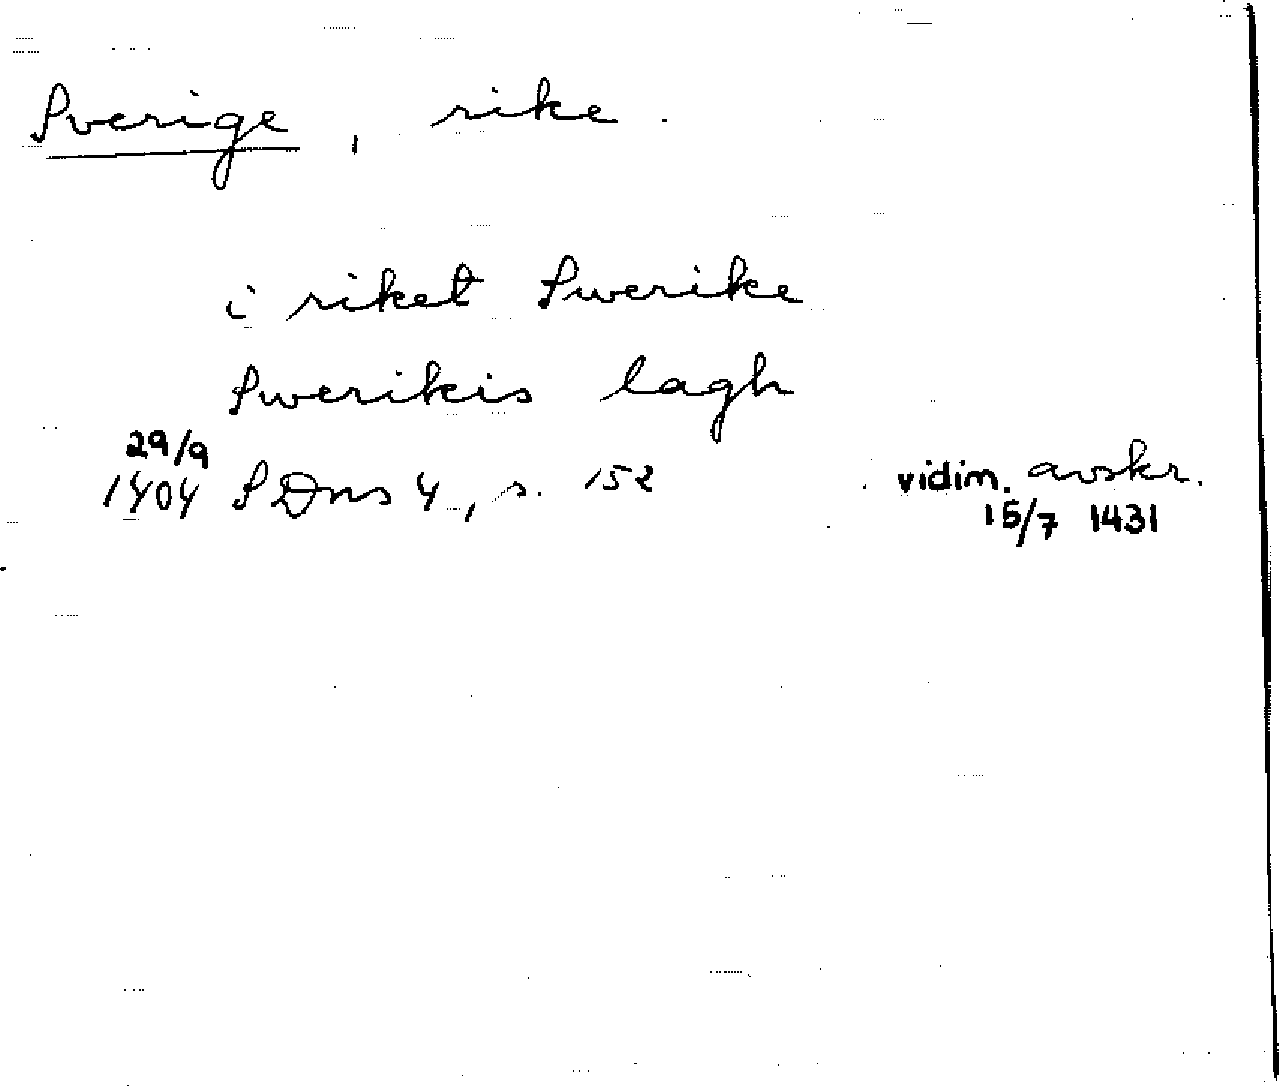 Sverige, rike.
i riket Swerike
Swerikis lagh
29/9
1404 SDns 4, s. 152 vidim. avskr.
15/7 1431